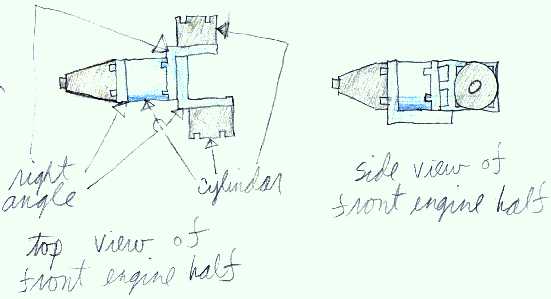 right
angle
cylindar
top view of
front engine half
side view of
front engine half